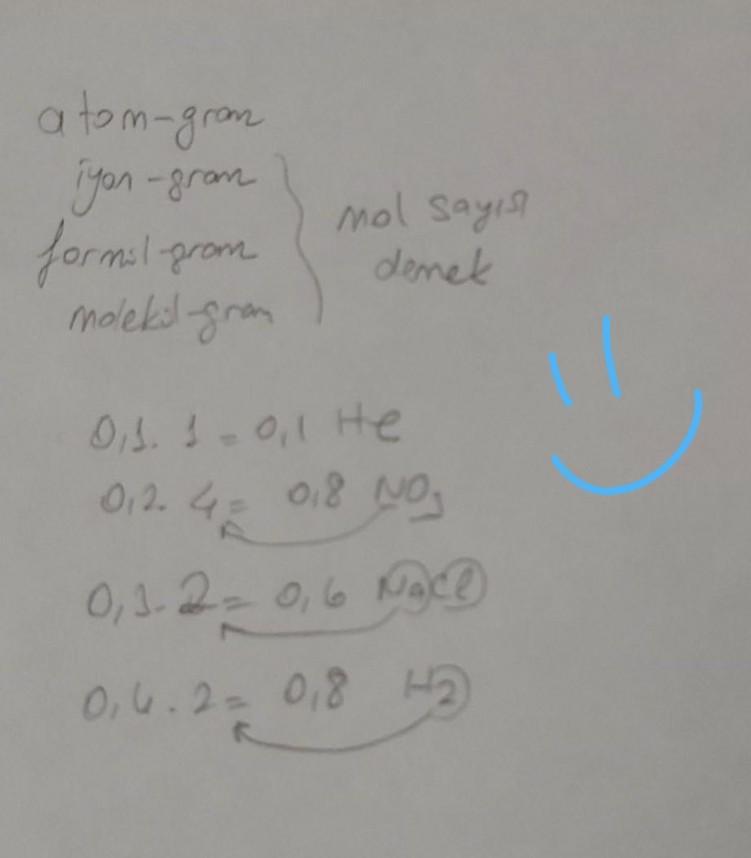 atom-gram
iyon-gram
formül-gram
molekül-gram
mol sayısı
demek
0,1. 1 = 0,1 He
0,2. 4 = 0,8 NO3
0,3. 2 = 0,6 NaCl
0,4. 2 = 0,8 H2